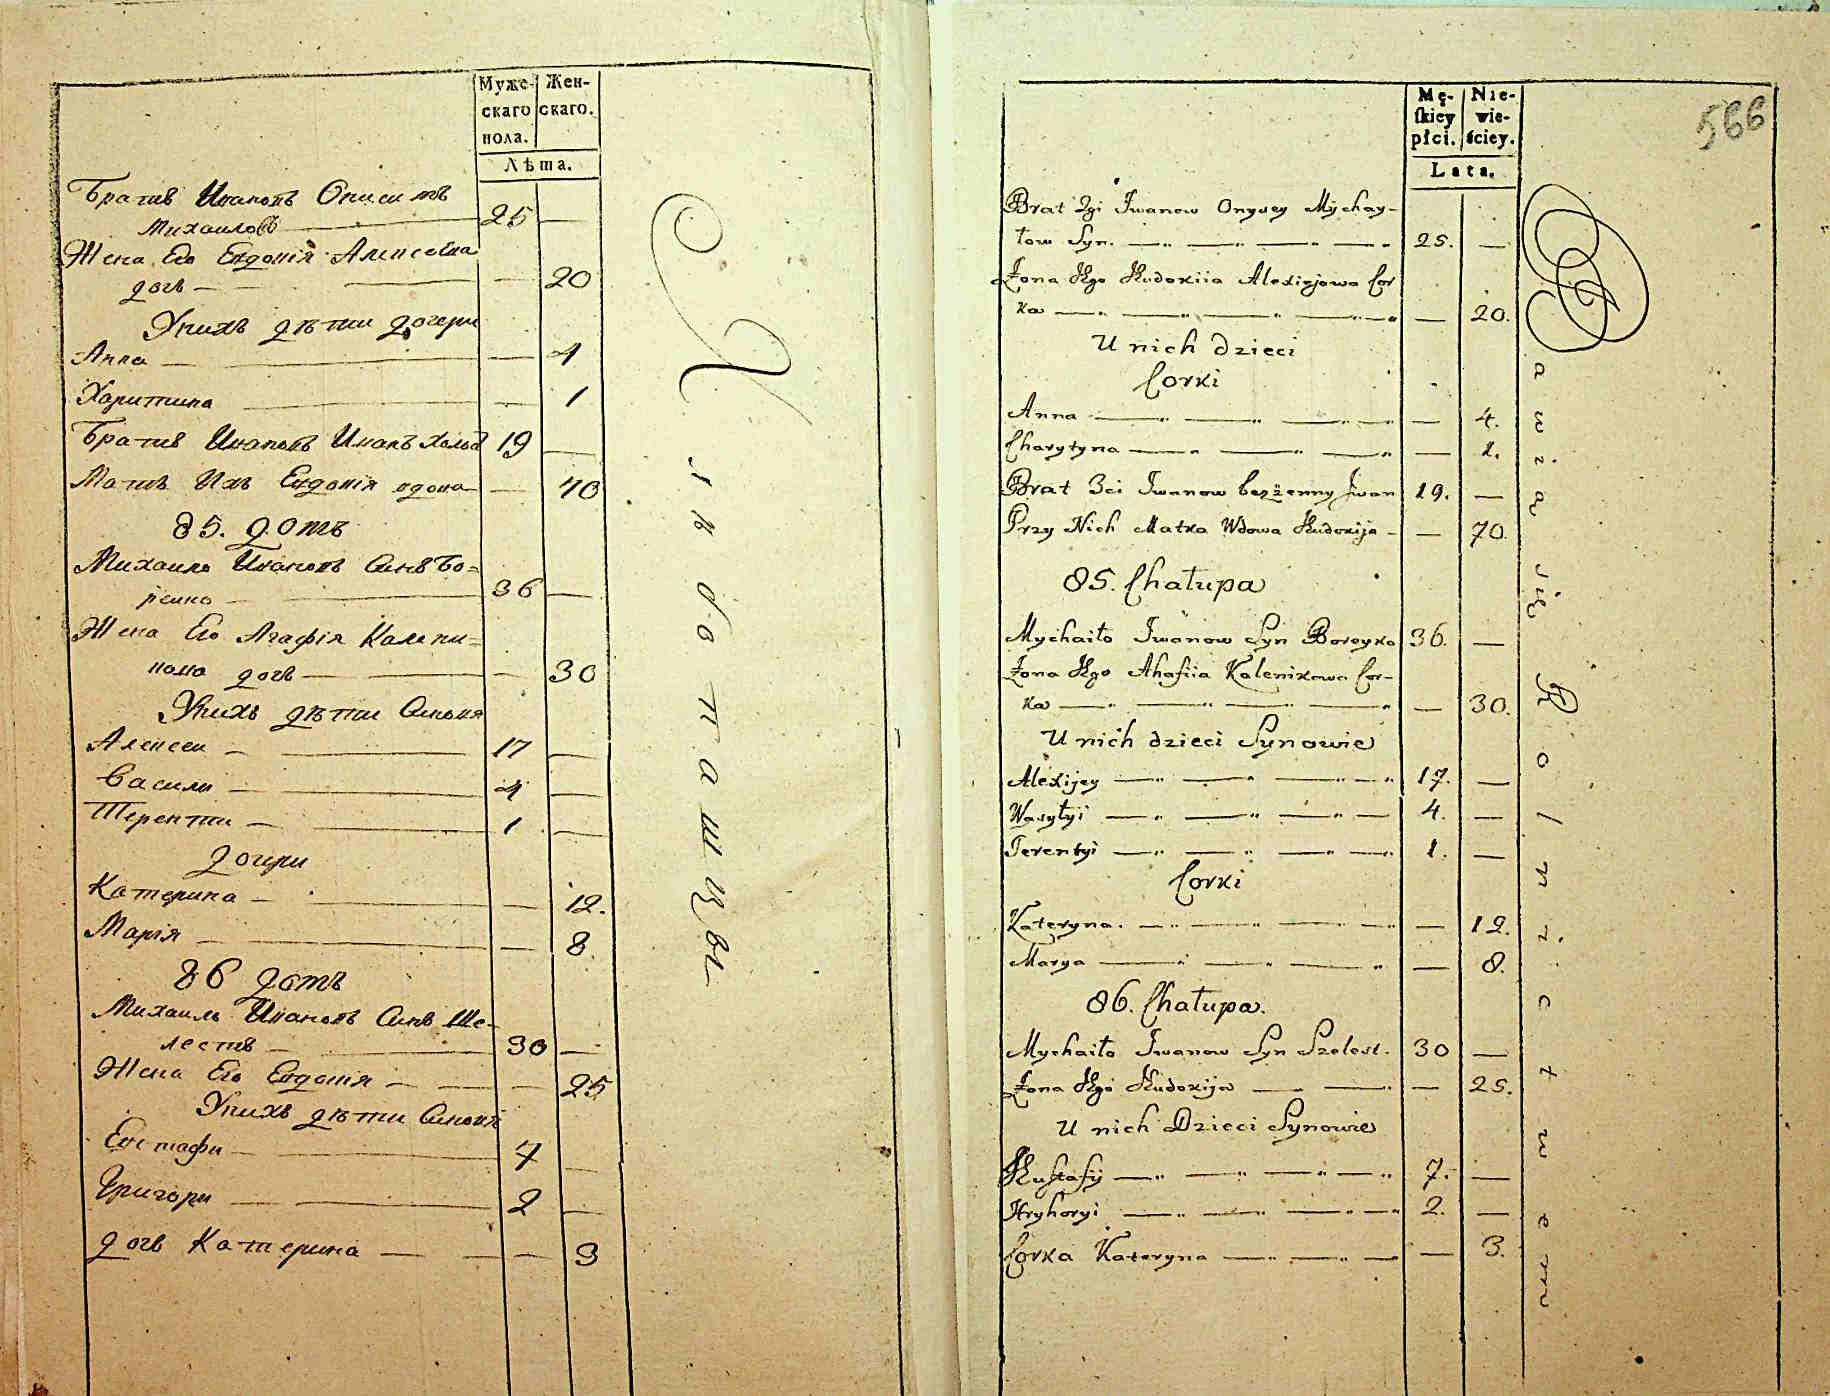 Муже-
скаго
пола.
Жен-
скаго.
Лѣта.
Братъ Ивановъ Онисимъ
Михаиловъ 25 —
Жена Его Евдокія Алексѣева
дочь — — 20
Унихъ дѣти дочери
Анна — — 4
Харитина — 1
Братъ Ивановъ Иванъ холос 19 —
Мать Ихъ Евдокія вдова — 70
85. домъ
Михаило Ивановъ Синъ Бо=
рейко — 36 —
Жена Его Агафія Калени=
кова дочь — — 30
Унихъ дѣти Синовя
Алексеи — 17 —
Васили — 4 —
Терентии — 1 —
дочери
Катерина — — 12.
Марія — — 8
86 домъ
Михаилъ Ивановъ Синъ Ше-
лестъ — 30 —
Жена Его Евдокія — — 25
Унихъ дѣти Синовя
Евстафи — 7 —
Григори — 2 —
дочь Катерина — — 3
Хлѣбопашцы
Mę-
skiey
płci.
Nie-
wie-
ściey.
Lata.
566
Brat 2gi Iwanow Onysey Mychay-
low Syn. — 25. —
Żona Jego Eudoxiia Alexiejowa Cor
ka — — 20.
U nich dzieci
Corki
Anna — — 4.
Charytyna — — 1.
Brat 3ci Iwanow bezżenny Iwan 19. —
Przy Nich Matka Wdowa Eudoxija — — 70.
85. Chałupa
Mychaiło Iwanow Syn Boreyko 36. —
Żona Jego Ahafiia Kalenikowa Cor-
ka — — 30.
U nich dzieci Synowie
Alexijey — 17. —
Wasylyi — 4. —
Terentyi — 1. —
Corki
Kateryna. — — 12.
Marya — — 8.
86. Chałupa.
Mychaiło Iwanow Syn Szelest. 30 —
Żona Jego Eudoxija — — 25.
U nich Dzieci Synowie
Eustafij — 7. —
Hryhoryi — 2. —
Corka Kateryna — — 3.
Bawią się Rolnictwem